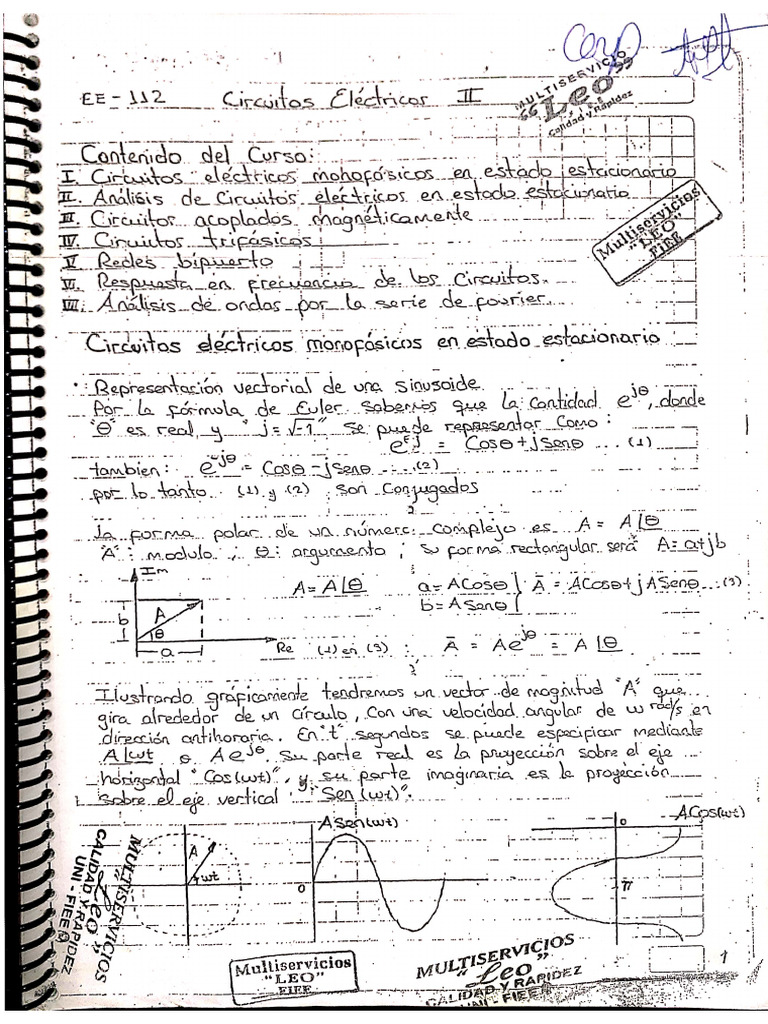 EE-112 Circuitos Eléctricos II
MULTISERVICIO
"Leo"
Calidad y Rapidez
Contenido del Curso:
I. Circuitos eléctricos monofásicos en estado estacionario
II. Análisis de Circuitos eléctricos en estado estacionario
III. Circuitos acoplados magnéticamente
IV. Circuitos trifásicos
V Redes bipuerto
VI. Respuesta en frecuencia de los Circuitos.
III. Análisis de ondas por la serie de fourier.
Multiservicios
"LEO"
FIEE
Circuitos eléctricos monofásicos en estado estacionario
· Representación vectorial de una sinusoide.
Por la fórmula de Euler sabemos que la cantidad e^jθ, donde
"θ" es real, y "j = √-1" se puede representar como:
= Cosθ + jSenθ ... (1)
tambien: e^-jθ = Cosθ - jSenθ ..... (2)
por lo tanto (1) y (2) son Conjugados
la forma polar de un número complejo es A = A∠θ
"A": modulo ; θ: argumento ; su forma rectangular será A = a+jb
Im
A
b
θ
a
Re
A = A∠θ
a = ACosθ
b = ASenθ
Ā = ACosθ + jASenθ ... (3)
(1) en (3) : Ā = Ae^jθ = A∠θ
Ilustrando gráficamente tendremos un vector de magnitud "A" que
gira alrededor de un círculo, con una velocidad angular de ω rad/s en
dirección antihoraria. En "t" segundos se puede especificar mediante
A∠ωt o Ae^jθ. Su parte real es la proyección sobre el eje
horizontal "Cos(ωt)", y su parte imaginaria es la proyección
sobre el eje vertical "Sen(ωt)".
A
ωt
ASen(ωt)
0
ACos(ωt)
0
π
MULTISERVICIOS
"Leo"
CALIDAD Y RAPIDEZ
UNI - FIEE
Multiservicios
"LEO"
FIEE
MULTISERVICIOS
"Leo"
CALIDAD Y RAPIDEZ
UNI - FIEE
1